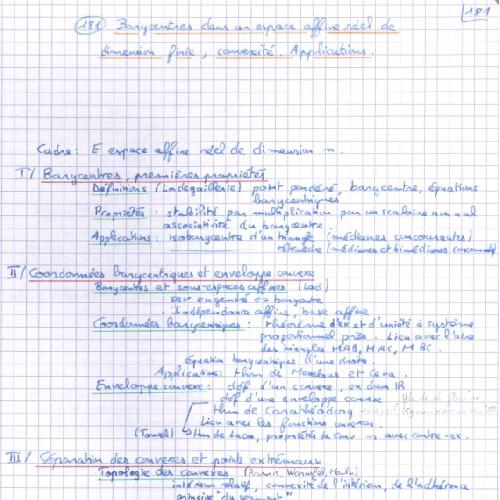 181
(181) Barycentres dans un espace affine réel de
dimension finie, convexité. Applications.
Cadre : E espace affine réel de dimension n.
I/ Barycentres, premières propriétés
Définitions (Ladegaillerie) point pondéré, barycentre, équations
barycentriques
Propriétés : stabilité par multiplication par un scalaire non nul
associativité du barycentre
Applications : isobarycentre d'un triangle (médianes concourantes)
tétraèdre (médianes et bimédianes concourantes)
II/ Coordonnées barycentriques et enveloppe convexe
Barycentres et sous-espaces affines (Lad)
sev engendré ca barycentre
. Indépendance affine, base affine
Coordonnées barycentriques : théorème d'ex et d'unicité à système
proportionnel près. Lien avec l'aire
des triangles MAB, MAC, MBC
Équation barycentrique d'une droite.
Applications : thm de Menelaus et Ceva.
Enveloppe convexe : déf d'un convexe, ex dans IR
déf d'une enveloppe convexe
thm de Carathéodory
Lien avec les fonctions convexes.
(Tauvel) thm de Lucas, propriétés de Conv → avec contre-ex.
III/ Séparation des convexes et points extrémaux
Topologie des convexes
intérieur relatif, convexité de l'intérieur, de l'adhérence
principe "du segment"